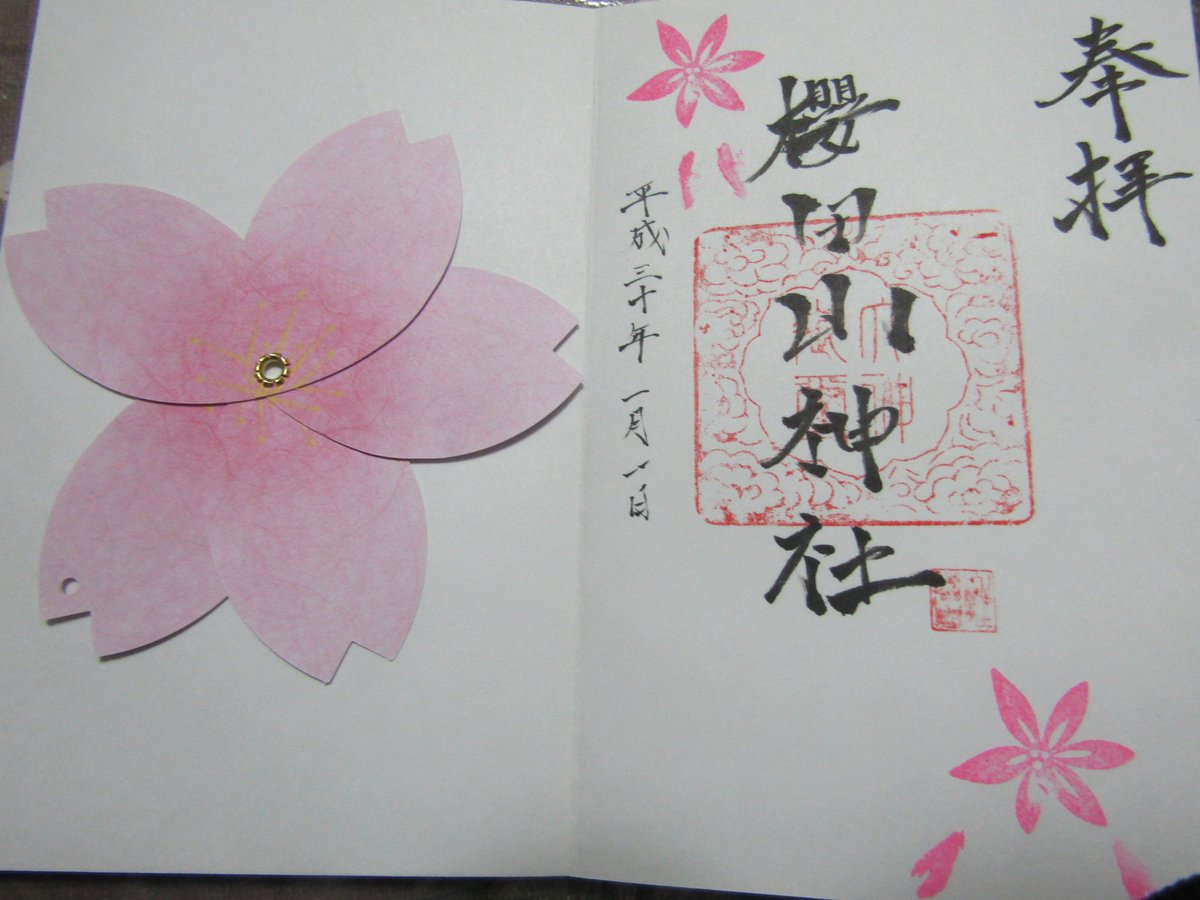 奉拝
櫻田山神社
平成三十年一月一日